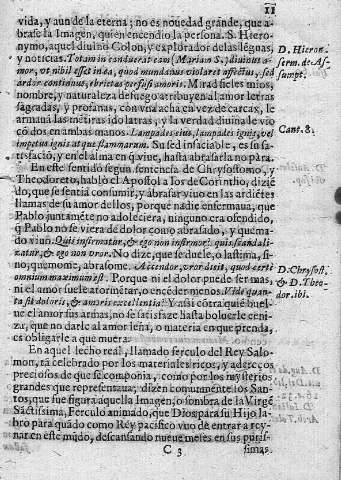 11
vida, y aun de la eterna; no es novedad grande, que a-
brase la Imagen, quien encendio la persona. S. Hiero-
nymo, aquel diuino Colon, y explorador de las lēguas,
y noticias. Totam in canduerat eam (Mariam S.) diuinus a-
mor, vt nihil esset in ea, quod mundanus violaret affectus, sed
ardor continuus, ebrietas perfusi amoris. Mirad si el es mios,
nombre, y naturaleza de fuego atribuyen al amor letras
sagradas, y profanas, con vna acha en vez de carcax, le
arma uā las mētiras idolatras, y la verdad diuina le vio
cō dos en ambas manos. Lampades eius, lampades ignis, vel
impetus ignis atque flammarum. Su sed insaciable, es su sa-
tisfació, y en el alma en q̄ viue, hasta abrasarla no para.
En este sentido segun sentencia de Chrysostomo, y
Theodoreto, hablò el Apostol a los de Corintho, diziē
do, que se sentia consumir, y abrasar viuo en las ardiētes
llamas de su amor dellos, porque nadie enfermaua, que
Pablo juntamēte no adoleciera, ninguno era ofendido,
q̄ Pablo no se viera de dolor como abrasado, y quema-
do viuo. Quis infirmatur, & ego non infirmor? quis scandali-
zatur, & ego non vror. No dize, que se duele, o lastima, si-
no, quemome, abrasome. Accendor, vror dixit, quod certè
omnium maximum est. Porque ni el dolor puede ser mas,
ni el amor suele atormētar, o encēder menos. Vide quan-
ta sit doloris, & amoris excellentia? Y assi cōtra quiē buel-
ue el amor sus armas, no se satisfaze hasta boluerle ceni-
za, que no darle al amor leña, o materia en que prenda,
es obligarle a que muera.
En aquel lecho real, llamado ferculo del Rey Salo-
mon, tā celebrado por los materiales ricos, y adereços
preciosos de que se componia, como por los mysterios
grandes que representaua; dizen comunmente los San-
tos, que fue figura aquella Imagen, o sombra de la Virgē
Sāctissima, Ferculo animado, que Dios para su Hijo la-
bro para quādo como Rey pacifico vuo de entrar a rey-
nar en este mūdo, descansando nueue meses en sus puris-
C 3
simas
D. Hieron.
serm. de As-
sumpt.
Cant. 8.
D. Chrysost.
& D. Theo-
dor. ibi.